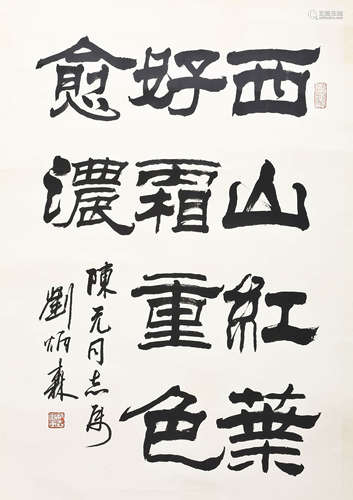 西山紅葉
好霜重色
愈濃
陳元同志屬
劉炳森